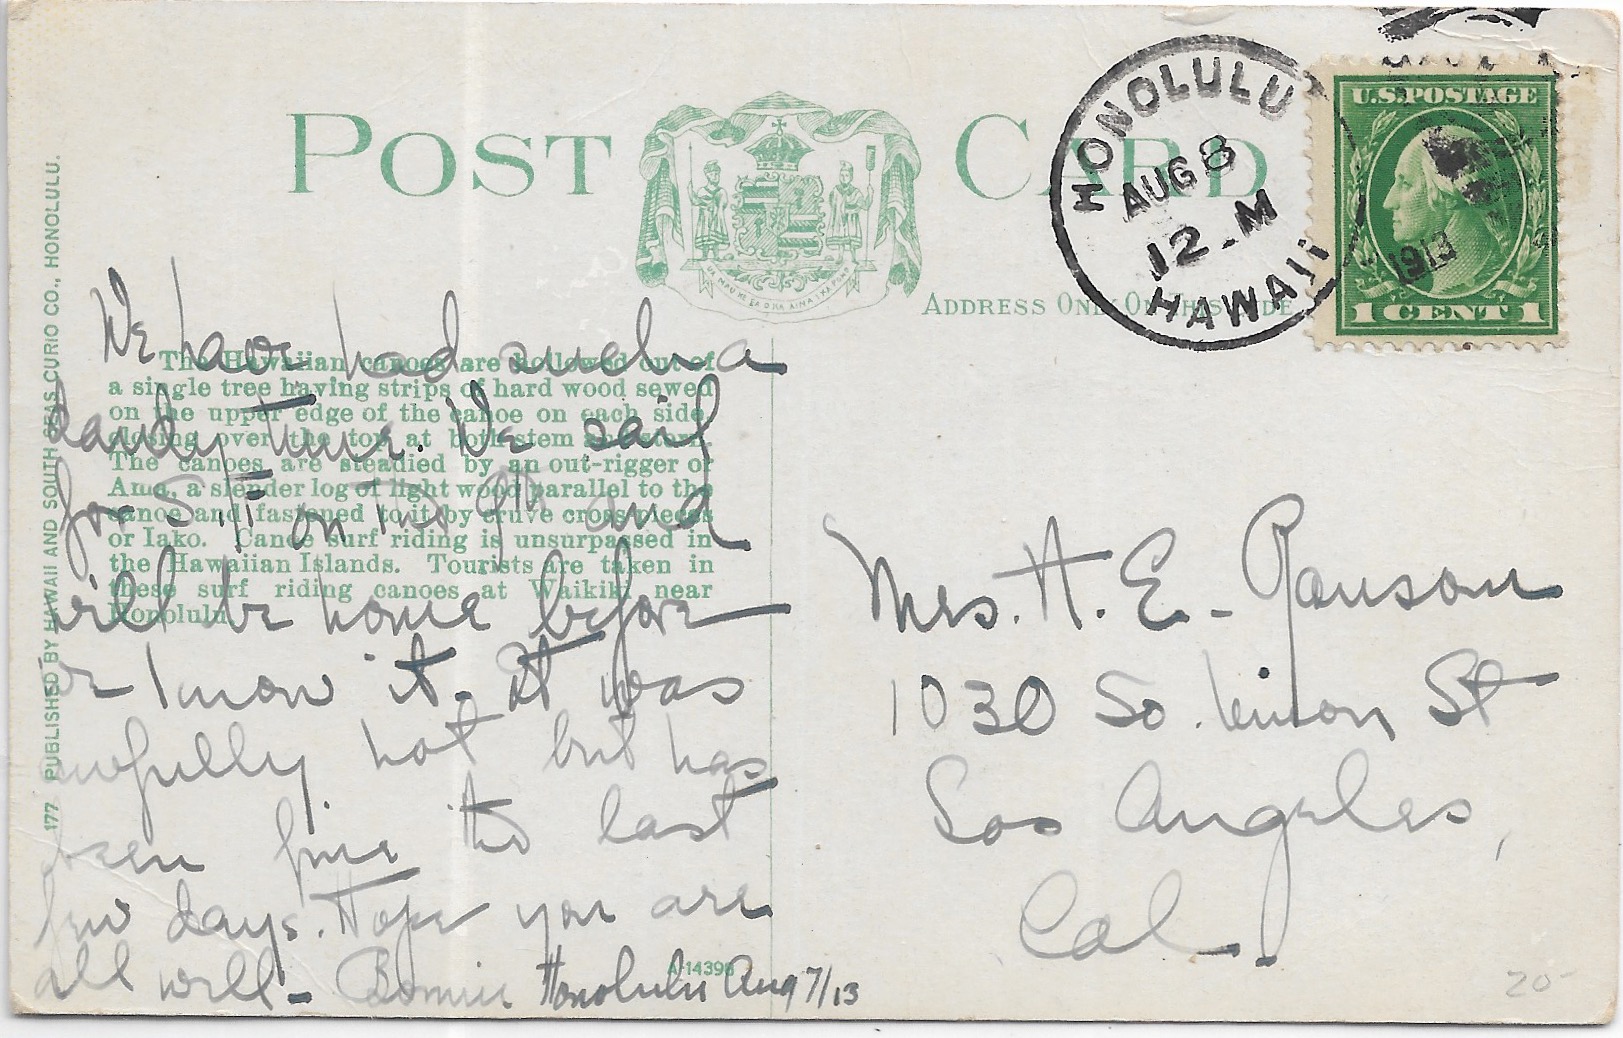 POST CARD
HONOLULU
AUG 8
12-M
HAWAII
1913
U.S. POSTAGE
1 CENT 1
UA MAU KE EA O KA AINA I KA PONO
ADDRESS ONLY ON THIS SIDE
177 PUBLISHED BY HAWAII AND SOUTH SEAS CURIO CO., HONOLULU.
The Hawaiian canoes are hollowed out of
a single tree having strips of hard wood sewed
on the upper edge of the canoe on each side,
closing over the top at both stem and stern.
The canoes are steadied by an out-rigger or
Ama, a slender log of light wood parallel to the
canoe and fastened to it by cruve cross-pieces
or Iako. Canoe surf riding is unsurpassed in
the Hawaiian Islands. Tourists are taken in
these surf riding canoes at Waikiki near
Honolulu.
We have had such a
dandy time. We sail
for S.F. on the 9th and
will be home before
we know it. It was
awfully hot but has
been fine the last
few days. Hope you are
all well - Honolulu Aug 7/13
A-14396
Mrs. H. E. Ranson
1030 So. Union St
Los Angeles,
Cal.
20-